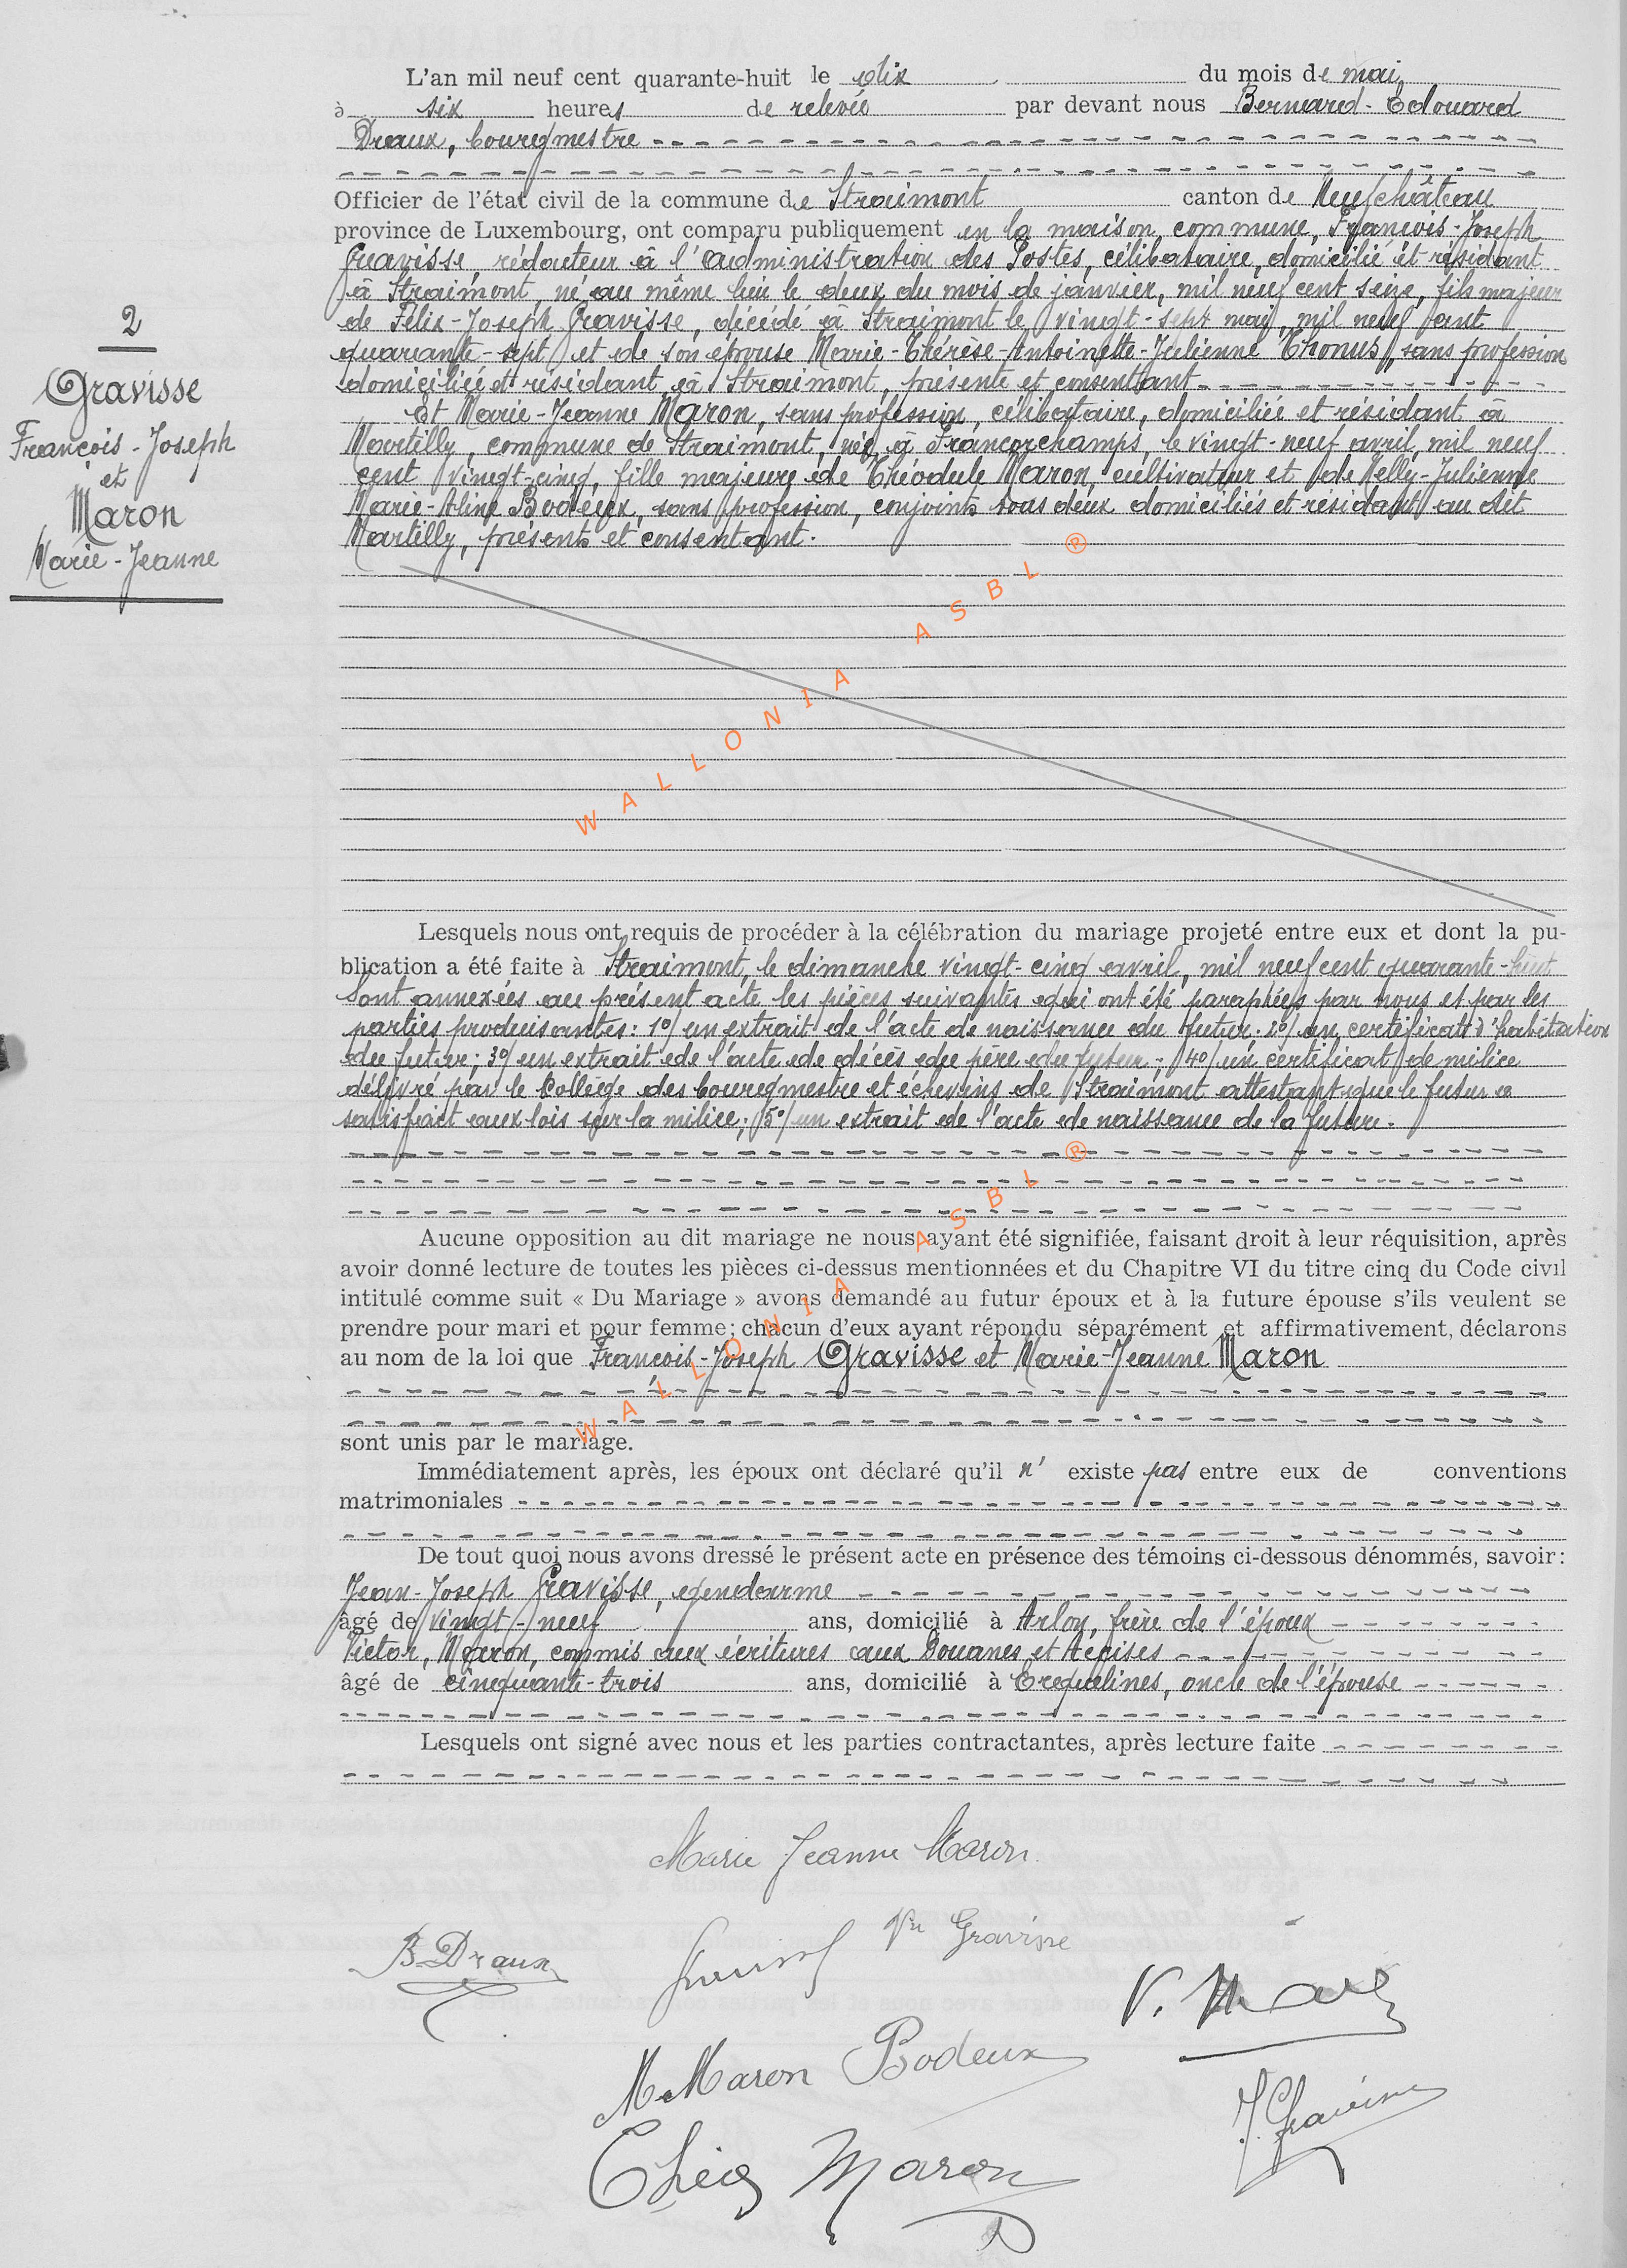 L'an mil neuf cent quarante-huit le dix du mois de mai
à six heures de relevée par devant nous Bernard-Edouard
Draux, bourgmestre
Officier de l'état civil de la commune de Straimont canton de Neufchâteau
province de Luxembourg, ont comparu publiquement en la maison commune, François-Joseph
Gravisse, rédacteur à l'administration des Postes, célibataire, domicilié et résidant
à Straimont, né au même lieu le deux du mois de janvier, mil neuf cent seize, fils majeur
de Félix-Joseph Gravisse, décédé à Straimont le vingt-sept mai, mil neuf cent
quarante-sept et de son épouse Marie-Thérèse-Antoinette-Julienne Thonus, sans profession
domiciliée et résidant à Straimont, présente et consentant
Et Marie-Jeanne Maron, sans profession, célibataire, domiciliée et résidant à
Martilly, commune de Straimont, née à Francorchamps, le vingt-neuf avril, mil neuf
cent vingt-cinq, fille majeure de Théodule Maron, cultivateur et de Nelly-Julienne
Marie-Aline Bodeux, sans profession, conjoints tous deux domiciliés et résidant au dit
Martilly, présents et consentant.
2
Gravisse
François-Joseph
et
Maron
Marie-Jeanne
WALLONIA ASBL ®
Lesquels nous ont requis de procéder à la célébration du mariage projeté entre eux et dont la pu-
blication a été faite à Straimont, le dimanche vingt-cinq avril, mil neuf cent quarante-huit
Sont annexées au présent acte les pièces suivantes qui ont été paraphées par nous et par les
parties produisantes: 1°/ un extrait de l'acte de naissance du futur; 2°/ un certificat d'habitation
du futur; 3°/ un extrait de l'acte de décès du père du futur; 4°/ un certificat de milice
délivré par le Collège des bourgmestre et échevins de Straimont attestant que le futur a
satisfait aux lois sur la milice; 5°/ un extrait de l'acte de naissance de la future.
Aucune opposition au dit mariage ne nous ayant été signifiée, faisant droit à leur réquisition, après
avoir donné lecture de toutes les pièces ci-dessus mentionnées et du Chapitre VI du titre cinq du Code civil
intitulé comme suit « Du Mariage » avons demandé au futur époux et à la future épouse s'ils veulent se
prendre pour mari et pour femme; chacun d'eux ayant répondu séparément et affirmativement, déclarons
au nom de la loi que François-Joseph Gravisse et Marie-Jeanne Maron
WALLONIA ASBL ®
sont unis par le mariage.
Immédiatement après, les époux ont déclaré qu'il n' existe pas entre eux de conventions
matrimoniales
De tout quoi nous avons dressé le présent acte en présence des témoins ci-dessous dénommés, savoir:
Jean-Joseph Gravisse, gendarme
âgé de vingt-neuf ans, domicilié à Arlon, frère de l'époux
Victor, Maron, commis aux écritures aux Douanes et Accises
âgé de cinquante-trois ans, domicilié à Erquelines, oncle de l'épouse
Lesquels ont signé avec nous et les parties contractantes, après lecture faite
Marie Jeanne Maron
B Draux
Vve Gravisse
V. Maron
M Maron Bodeux
J. Gravisse
Maron